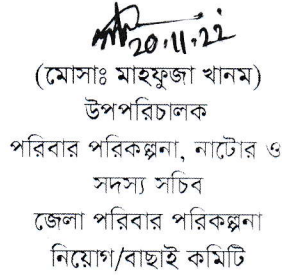 20.11.22
(মোসাঃ মাহফুজা খানম)
উপপরিচালক
পরিবার পরিকল্পনা, নাটোর ও
সদস্য সচিব
জেলা পরিবার পরিকল্পনা
নিয়োগ/বাছাই কমিটি